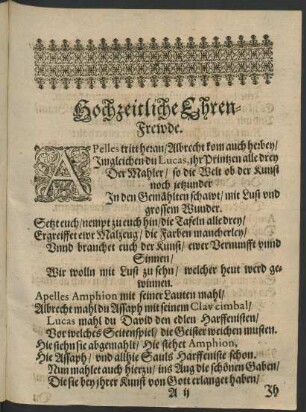 Hochzeitliche Ehren-
Frewde.
APelles tritt heran/ Albrecht kom auch herbey/
Imgleichen du Lucas, jhr Printzen alle drey
Der Mahler/ so die Welt ob der Kunst
noch jetzunder
In den Gemählten schawt/ mit Lust vnd
grossem Wunder.
Setzt euch/ nempt zu euch hin/ die Tafeln alle drey/
Ergreiffet ewr Malzeug/ die Farben mancherley/
Vnnd brauchet euch der Kunst/ ewer Vernunfft vnnd
Sinnen/
Wir wolln mit Lust zu sehn/ welcher heut werd ge-
winnen.
Apelles Amphion mit seiner Lauten mahl/
Albrecht mahl du Assaph mit seinem Clavcimbal/
Lucas mahl du David den edlen Harffenisten/
Vor welches Seitenspiel/ die Geister weichen musten.
Hie stehn sie abgemahlt/ Hie stehet Amphion,
Hie Assaph/ vnd allhie Sauls Harffeniste schon.
Nun mahlet auch hierzu/ ins Aug die schönen Gaben/
Die sie bey jhrer Kunst von Gott erlanget haben/
A ij Ih